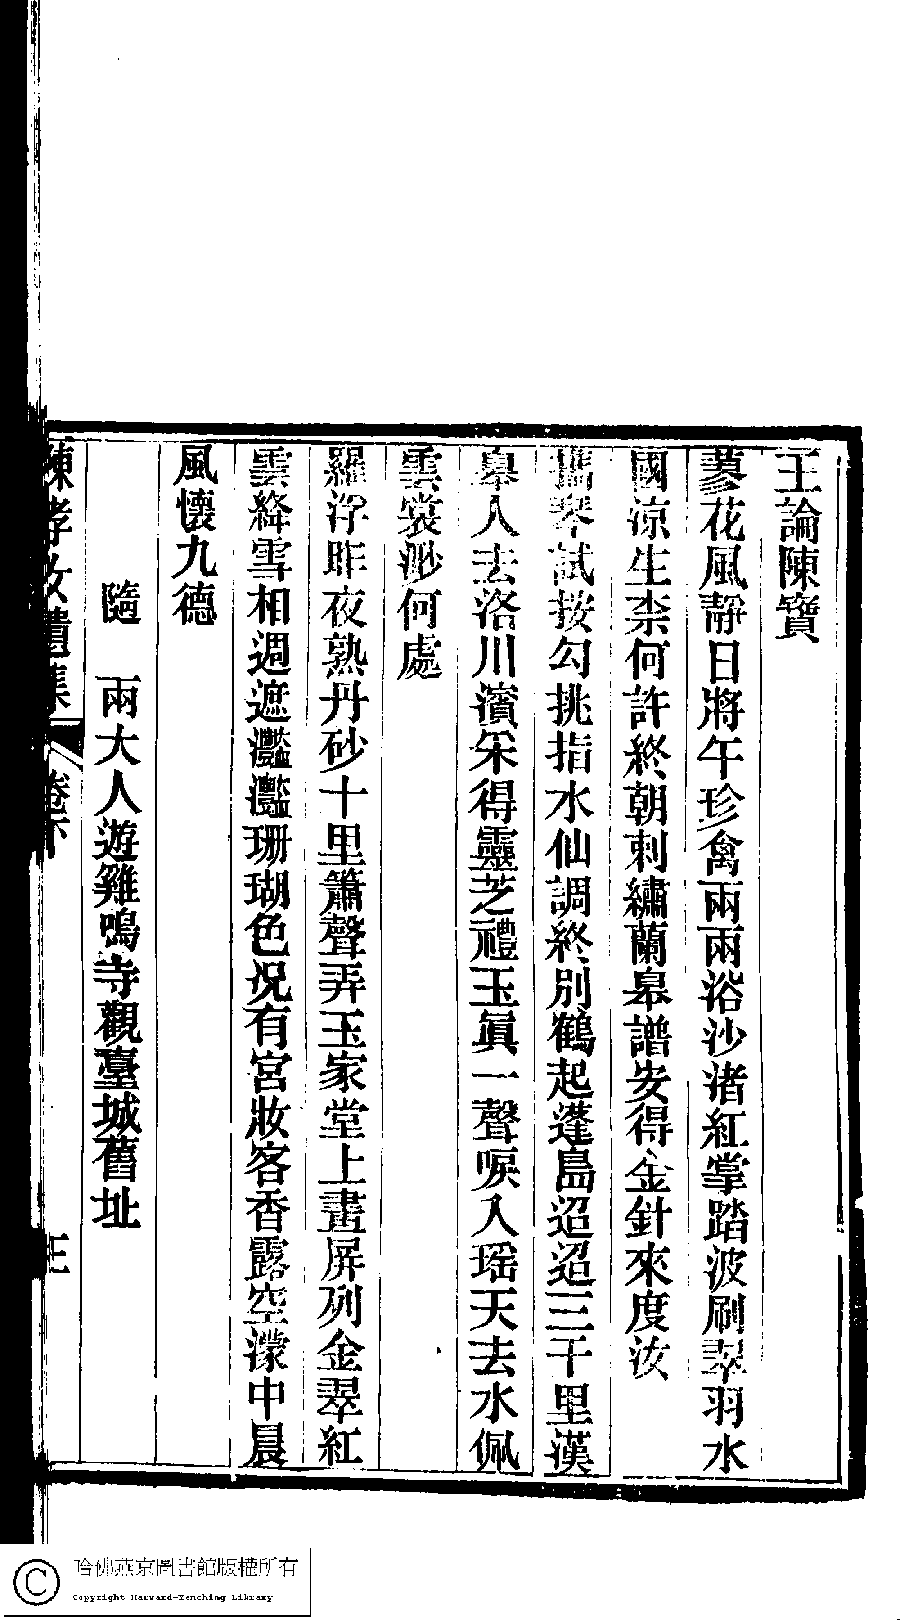 王論陳寶
蓼花風靜日將午珍禽兩兩浴沙渚紅掌踏波刷翠羽水
國涼生柰何許終朝刺繡蘭皋譜安得金針來度汝
琴試按勾挑指水仙調終別鶴起蓬島迢迢三千里漢
皋人去洛川濱采得靈芝禮玉眞一聲唳入瑶天去水佩
雲裳渺何處
羅浮昨夜熟丹砂十里簫聲弄玉家堂上畫屏列金翠紅
雲絳雪相週遮灩灩珊瑚色况有宮妝客香露空濛中晨
風懷九德
隨　兩大人遊雞鳴寺觀臺城舊址
陳孝女遺集　卷下
哈佛燕京圖書館版權所有
Copyright Harvard-Yenching Library